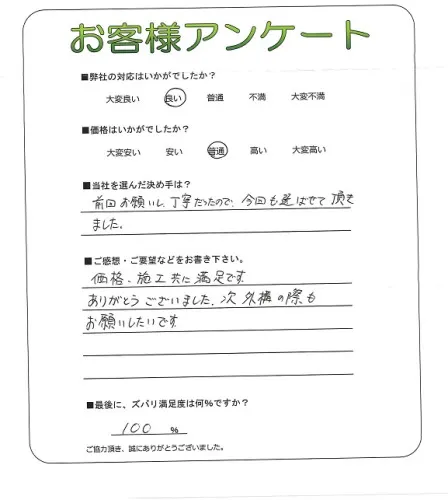 お客様アンケート
■弊社の対応はいかがでしたか？
大変良い 良い 普通 不満 大変不満
■価格はいかがでしたか？
大変安い 安い 普通 高い 大変高い
■当社を選んだ決め手は？
前回お願いし、丁寧だったので、今回も選ばせて頂き
ました。
■ご感想・ご要望などをお書き下さい。
価格、施工共に満足です。
ありがとうございました。次外構の際も
お願いしたいです
■最後に、ズバリ満足度は何％ですか？
100 %
ご協力頂き、誠にありがとうございました。